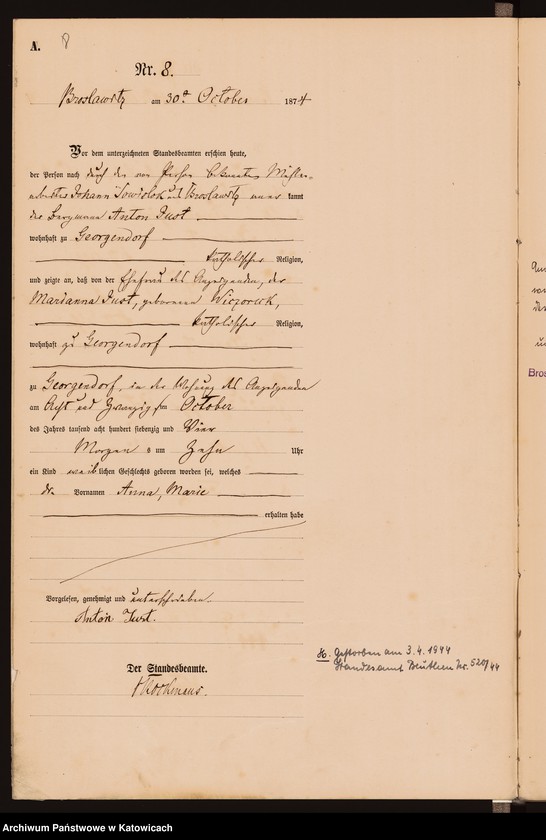 A. 8
Nr. 8.
Broslawitz am 30ten October 1874
Vor dem unterzeichneten Standesbeamten erschien heute,
der Person nach durch den von Person bekannten
Johann und Broslawitz kannt
der Bergmann Anton Just
wohnhaft zu Georgendorf
katholischer Religion,
und zeigte an, daß von der Ehefrau des Anzeigenden, der
Marianna Just, geborenen Wieczorek,
katholischer Religion,
wohnhaft zu Georgendorf
zu Georgendorf, in der Wohnung des Anzeigenden
am Acht und Zwanzigsten October
des Jahres tausend acht hundert siebenzig und Vier
Morgens um Zehn Uhr
ein Kind weiblichen Geschlechts geboren worden sei, welches
Vornamen Anna, Marie
erhalten habe
Vorgelesen, genehmigt und unterschrieben.
Anton Just.
Der Standesbeamte.
H. Gestorben am 3.4.1944
Standesamt Beuthen Nr. 520/44
Bros
Archiwum Państwowe w Katowicach